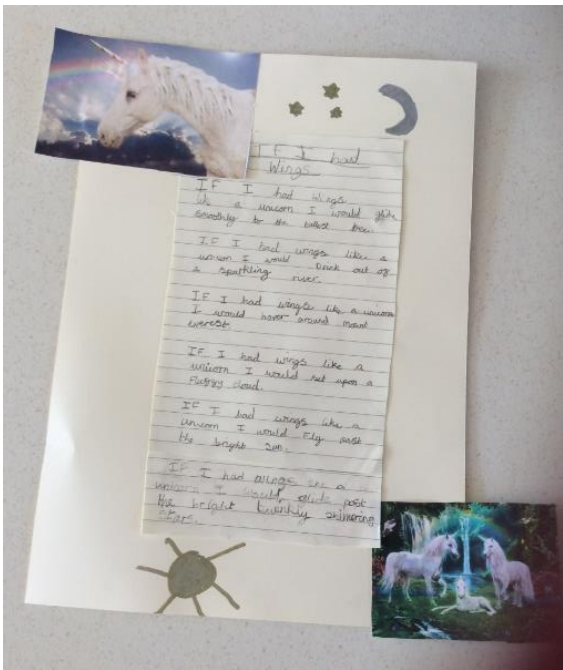 IF I had
wings
IF I had wings
like a unicorn I would glide
smoothly to the tallest tree.
IF I had wings like a
unicorn I would Drink out of
a sparkling river.
IF I had wings like a unicorn
I would hover around mount
everest.
IF I had wings like a
unicorn I would rest upon a
fluffy cloud.
IF I had wings like a
unicorn I would Fly past
the bright sun.
IF I had wings like a
unicorn I would glide past
the bright twinkly shimering
stars.